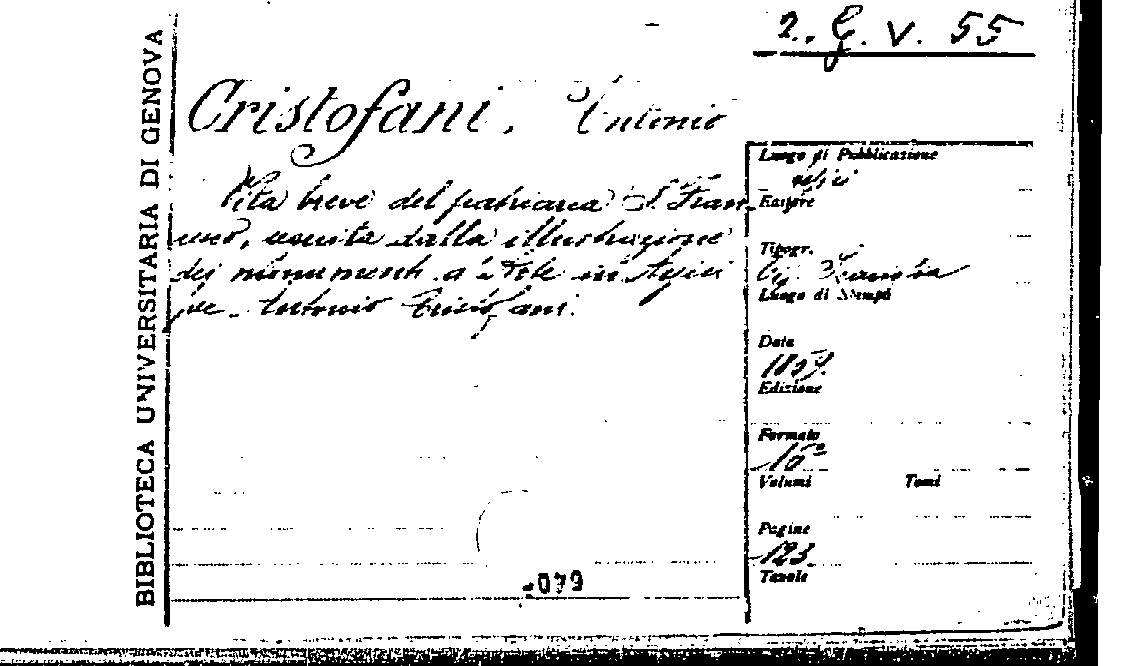 2. G. V. 55
BIBLIOTECA UNIVERSITARIA DI GENOVA
Cristofani, Antonio
Vita breve del patriarca S. Fran-
uscita dalla illustrazione
dei monumenti d'arte in Assisi
Antonio Cristofani.
Luogo di Pubblicazione
Editore
Tipogr.
Luogo di Stampa
Data
Edizione
Formato
16º
Volumi Tomi
Pagine
123.
Tavole
079